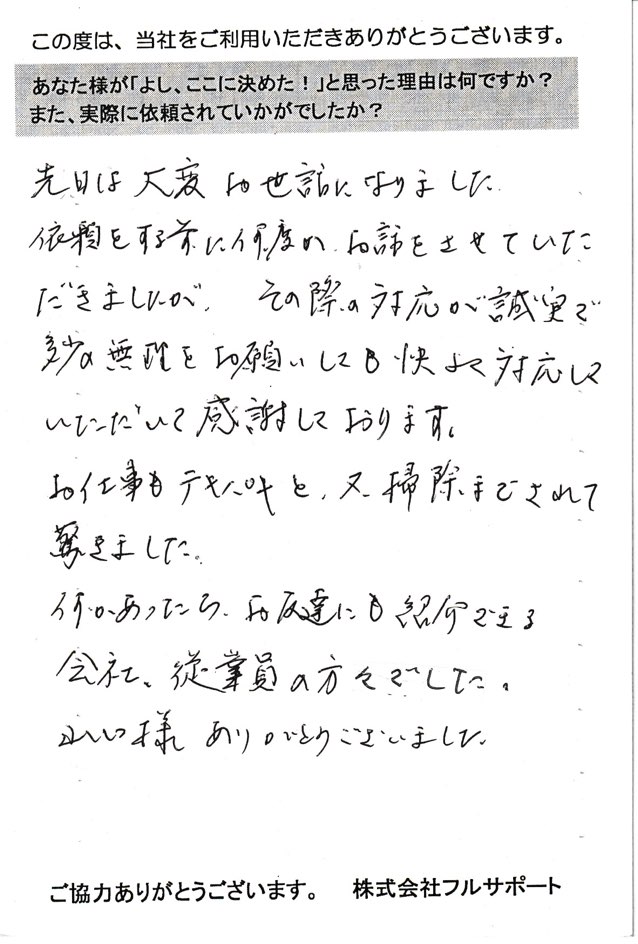 この度は、当社をご利用いただきありがとうございます。
あなた様が「よし、ここに決めた！」と思った理由は何ですか？
また、実際に依頼されていかがでしたか？
先日は大変お世話になりました
依頼をする前に何度かお話をさせていた
だきましたが、その際の対応が誠実で
多少の無理をお願いしても快よく対応して
いただいて感謝しております。
お仕事もテキパキと、又掃除までされて
驚きました。
何かあったら、お友達にも紹介できる
会社、従業員の方々でした。
山口様 ありがとうございました。
ご協力ありがとうございます。 株式会社フルサポート